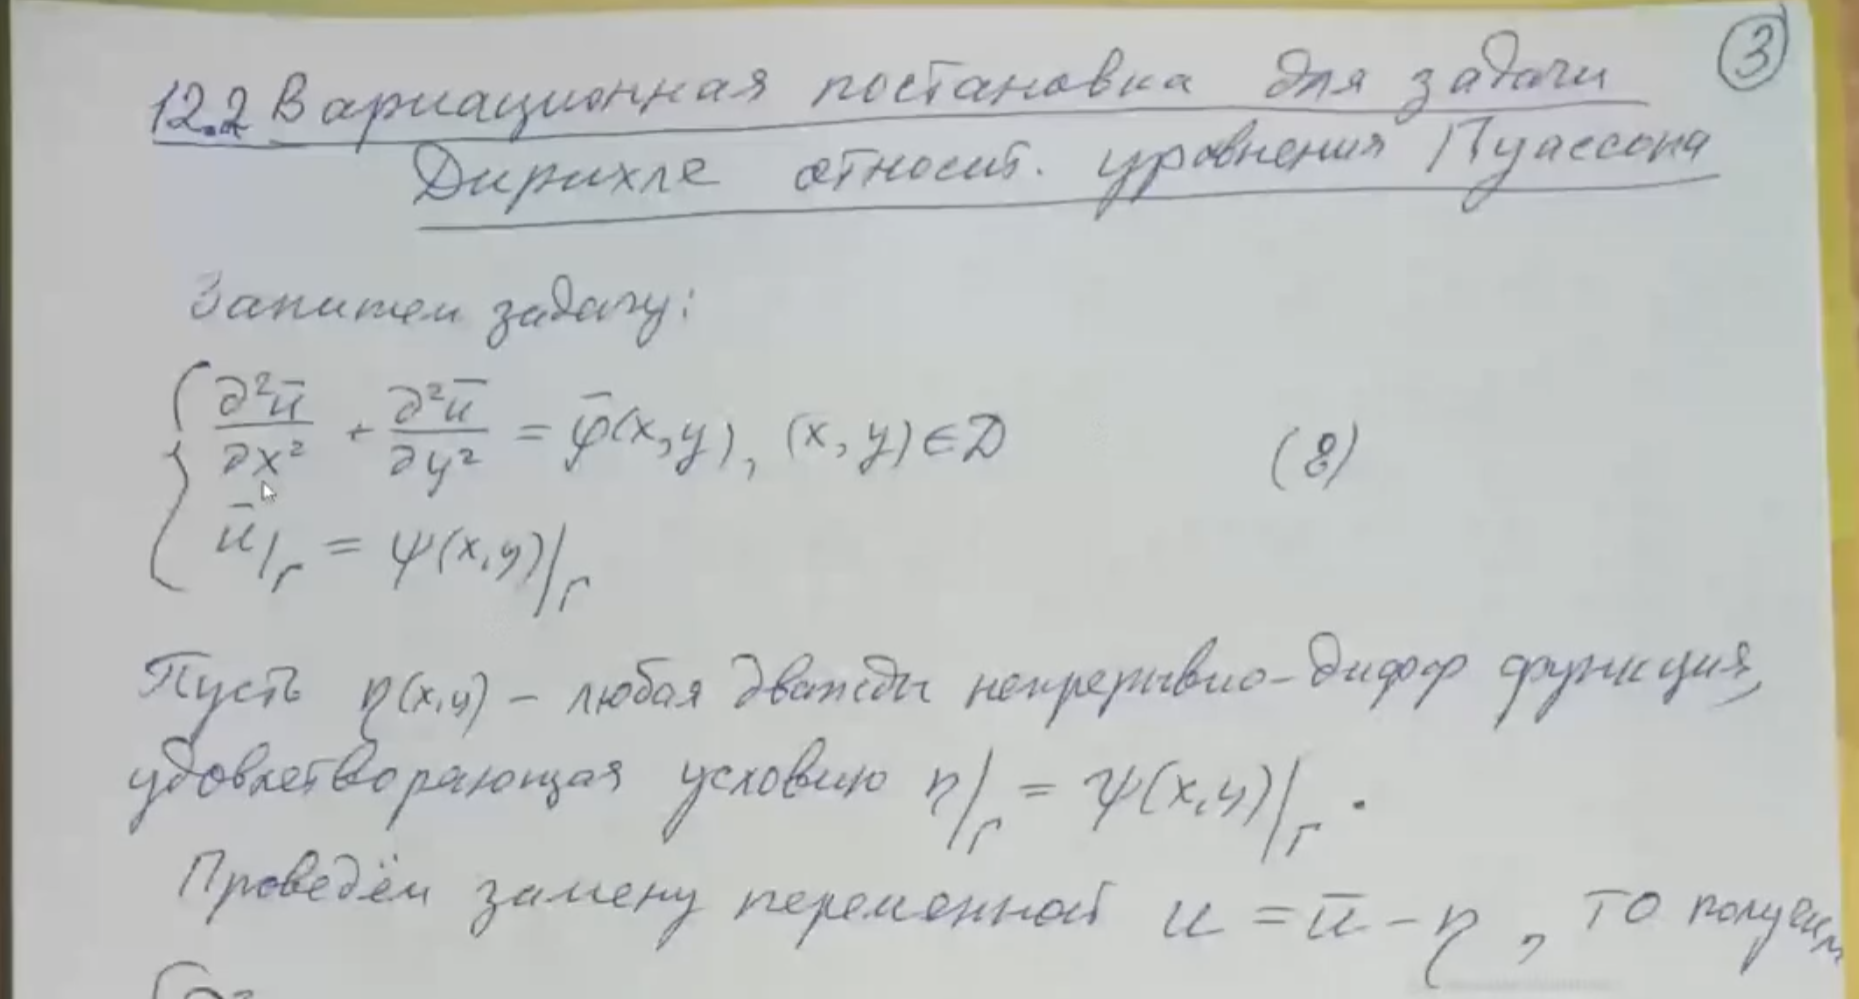 ③
12.2 Вариационная постановка для задачи
Дирихле относит. уравнения Пуассона
Запишем задачу:
∂²ū/∂x² + ∂²ū/∂y² = φ̄(x,y), (x,y)∈D (8)
ū|_Г = ψ(x,y)|_Г
Пусть η(x,y) – любая дважды непрерывно-дифф функция,
удовлетворяющая условию η|_Г = ψ(x,y)|_Г.
Проведём замену переменной u = ū – η, то получим